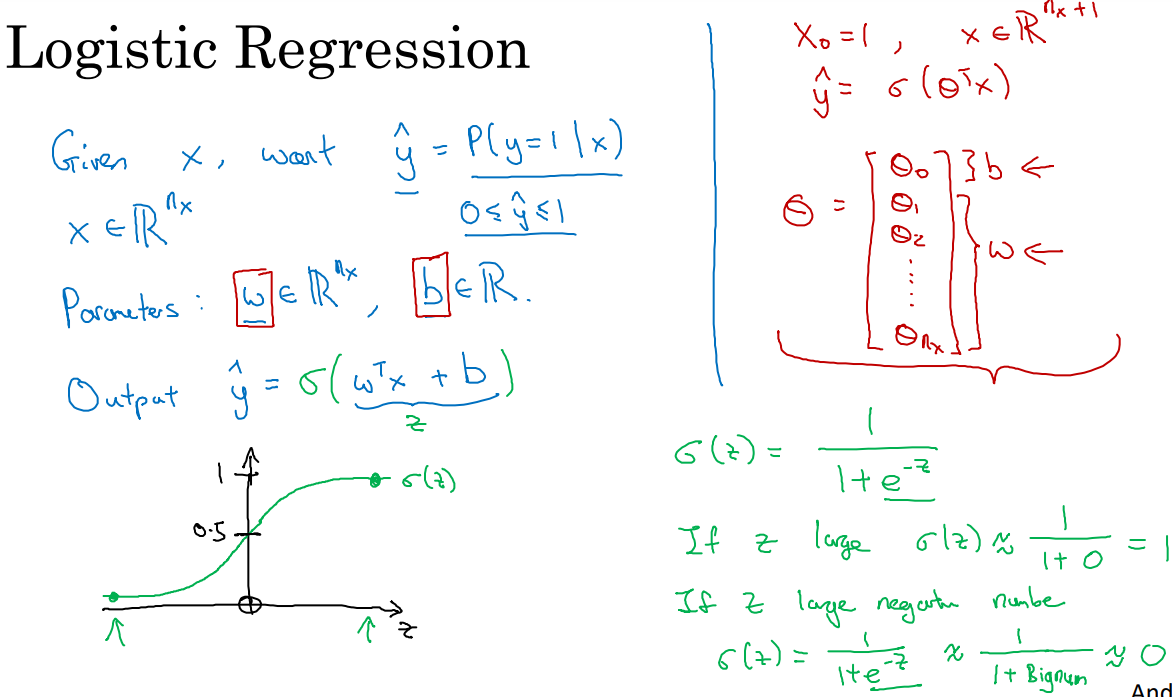 Logistic Regression
Given x, want ŷ = P(y=1|x)
x ∈ ℝ^{n_x}
0 ≤ ŷ ≤ 1
Parameters: w ∈ ℝ^{n_x}, b ∈ ℝ.
Output ŷ = σ(wᵀx + b)
z
1
σ(z)
0.5
z
x₀ = 1, x ∈ ℝ^{n_x+1}
ŷ = σ(θᵀx)
θ = [θ₀ } b ←
θ₁
θ₂ } w ←
⋮
θ_{n_x}]
σ(z) = 1 / (1 + e^{-z})
If z large σ(z) ≈ 1 / (1 + 0) = 1
If z large negative number
σ(z) = 1 / (1 + e^{-z}) ≈ 1 / (1 + Bignum) ≈ 0
And